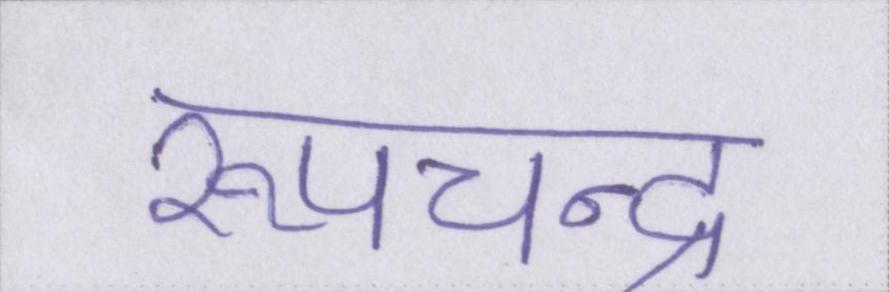 रूपचन्द्र